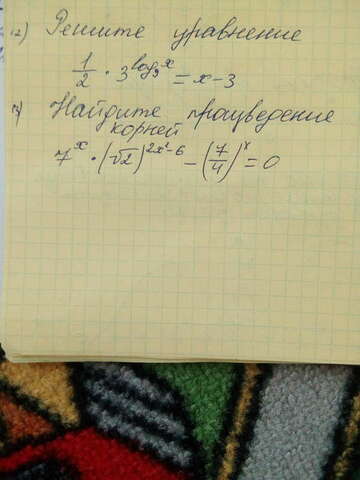 12) Решите уравнение
1/2 · 3^{log_3 x} = x - 3
13) Найдите произведение
корней
7^x · (√2)^{2x²-6} - (7/4)^x = 0